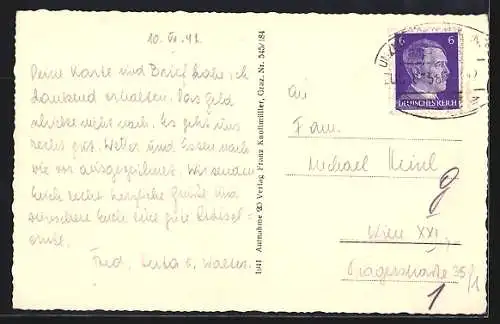 10. VI. 41.
Deine Karte und Brief habe ich
dankend erhalten. Das Geld
schicke nicht nach. Es geht uns
recht gut. Wetter und Essen nach
wie vor ausgezeichnet. Wir senden
Euch recht herzliche Grüße und
wünschen Euch eine gute
Fred, u. Walter.
1941 Aufnahme u. Verlag Franz Knollmüller, Graz. Nr. 545/184
6 6
DEUTSCHES REICH
An
Fam.
Michael Heinl
9
Wien XXI,
Pragerstraße 35/1
1